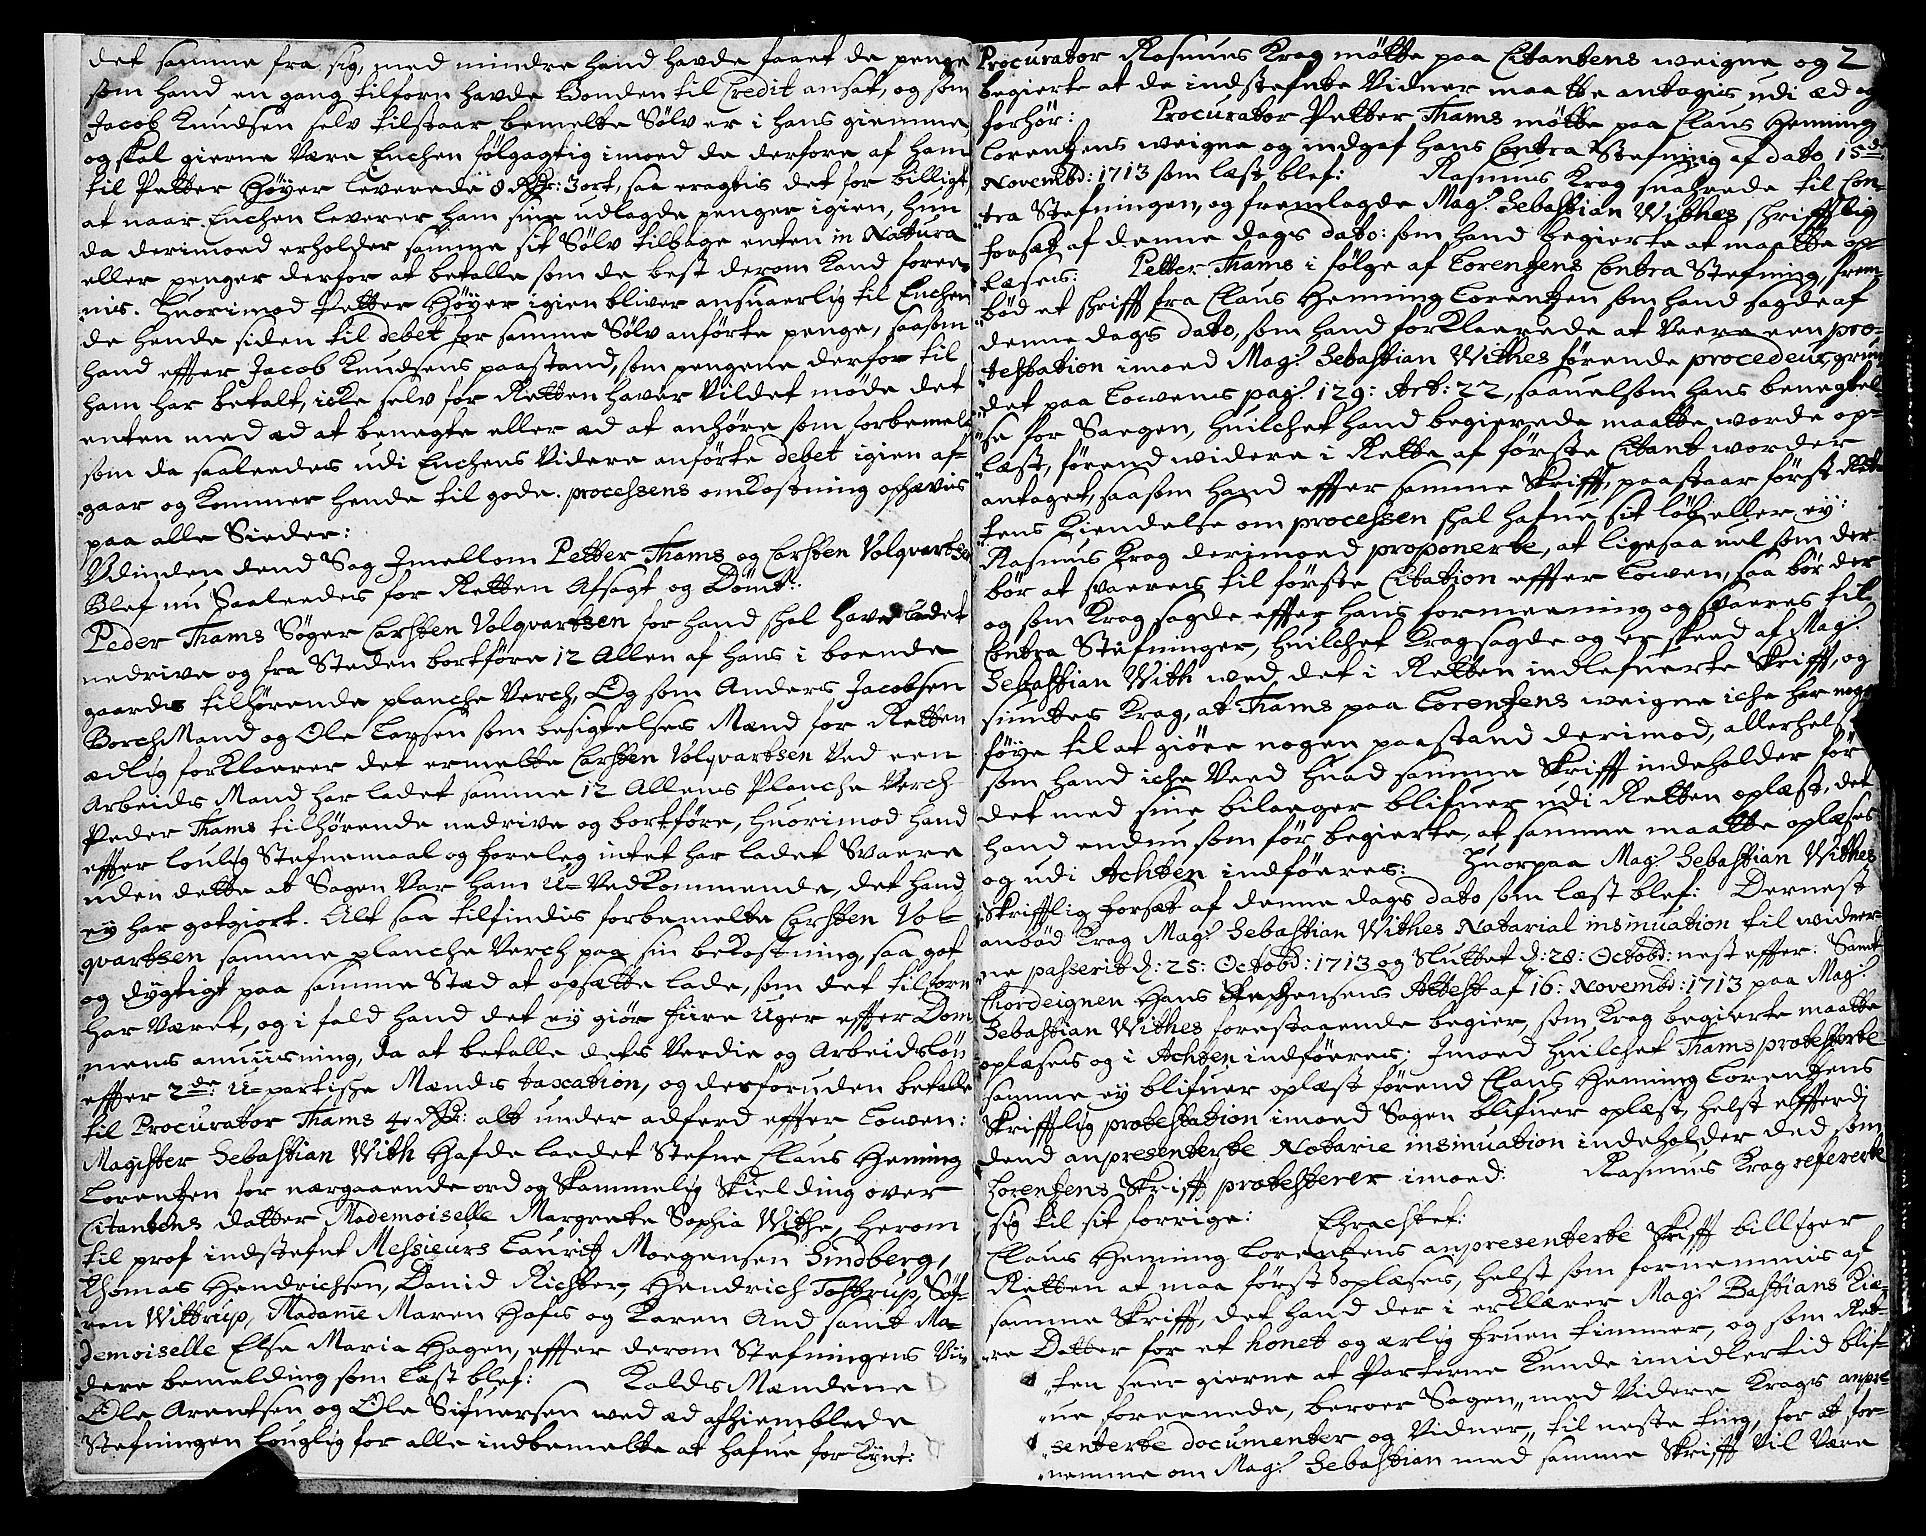 det samme fra sig, med mindre hand havde faaet de penge
som hand en gang tilforn havde Bonden til Credit ansat, og som
Jacob Knudsen selv tilstaar bemelte Sølv er i hans giemme,
og skal gierne være Enchen følgagtig imoed de derfore af ham
til Petter Høyer leverede 8 Rdr: 3 ort, saa eragtis det for billigt,
at naar Enchen leverer ham sine udlagde penger igien, hun
da derimoed erholder samme sit Sølv tilbage enten in Natura
eller penger derfor at betalle som de best derom Kand foree-
nis. Huorimod Petter Høyer igien bliver ansuaerlig til Enchen
de hende siden til debet for samme Sølv anførte penge, saasom
hand effter Jacob Knudsens paastand, som pengene derfor til
ham har betalt, icke selv for Retten haver Vildet møde det
enten med æd at benegte eller æd at anhøre som forbemelt
som da saaleedes udi Enchens Videre anførte debet igien af-
gaar og Kommer hende til gode. processens omKostning ophævis
paa alle Sieder:
Udinden dend Sag Imellom Petter Thams og Carsten Volqvartsen
Blef nu Saaleedes for Retten Afsagt og Dømt:
Peder Thams Søger Carsten Volqvartsen for hand skal have ladet
nedrive og fra Steden bortføre 12 Allen af hans i boende
gaards tilhørende planche Verch, Og som Anders Jacobsen
BorchMand og Ole Larsen som besigtelses Mænd for Retten
ædlig forklaarer det ermelte Carsten Volqvartsen Ved een
Arbeids Mand har ladet samme 12 Allens Planche Verch
Peder Thams tilhørende nedrive og bortføre, Huorimod hand
effter loulig Stefnemaal og foreleg intet har ladet Svaere
uden dette at Sagen Var ham U-Vedkommende, det hand
ey har gotgiort. Alt saa tilfindis forbemelte Carsten Vol-
qvartsen samme planche Verch paa sin bekostning, saa got
og dygtigt paa samme Stæd at opsætte lade, som det tilforn
har Været, og i fald hand det ey giør fiire Uger effter Dom-
mens anviisning, da at betalle dets Verdie og Arbeidsløn
effter 2de U-partishe Mænds taxation, og desforuden betalle
til Procurator Thams 4 Rdr: alt under adferd effter Lowen:
Magister Sebastian With Hafde laedet Stefne Claus Hening
Lorentzen for nærgaaende ord og skammelig Skielding over
Citantens datter Mademoiselle Margrete Sophia Withe, Herom
til prof indstefnt Messieurs Lauritz Moegensen Sindberg,
Thomas Hendrichsen, David Richter, Hendrich Tostrup, Søf-
ren Wittrup, Madame Maren Hofs og Karen And samt Ma-
demoiselle Elsa Maria Hagen, effter derom Stefningens Vii-
dere bemelding som Læst blef: Kalds Mændene
Ole Arentsen og Ole Sifuersen wed æd afhiemblede
Stefningen louglig for alle indbemelte at hafue forkynt:
2
Procurator Rasmus Krag møtte paa Citantens weigne og
begierte at de indstefnte Vidner maatte antagis udi æd og
forhør: Procurator Petter Thams møtte paa Claus Henning
Lorentzens weigne og indgaf hans Contra Stefning af dato 15de
Novembd: 1713 som læst blef: Rasmus Krag suahrede til Con-
tra Stefningen, og fremlagde Mag: Sebastian Withes skrifftlig
forsæt af denne dags dato: som hand begierte at maatte op-
læses: Petter Thams i følge af Lorentzens Contra Stefning, frem-
bød et skrifft fra Claus Henning Lorentzen som hand sagde af
denne dags dato, som hand forklaerede at Veere een pro-
testation imoed Mag: Sebastian Withes førende procedeur, grun-
det paa Lowens pag: 129: Art: 22, saauelsom hans benegtel-
se for Saegen, huilchet hand begierede maatte worde op-
læst, førend widere i Rette af første Citant worder
antaget, saasom hand effter samme Skrifft, paastaar først Ret-
tens Kiendelse om processen skal hafue sit løb eller ey:
Rasmus Krag derimoed proponerte, at ligesaa uel som der
bør at svaeres til første Citation effter Lowen, saa bør der
og som Krag sagde effter hans formeening og svaeres til
Contra Stefninger, huilchet Krag sagde og er skeed af Mag:
Sebastian With wed det i Retten indlefuerte Skrifft, og
siuntes Krag, at Thams paa Lorentzens weigne iche har noge
føye til at giøre nogen paastand derimod, allerhelst
som hand iche Veed huad samme Skrifft indeholder før
det med sine bilaeger blifuer udi Retten oplæst, det
hand endnu som før begierte, at samme maatte oplæses
og udi Achten indføeres: Huorpaa Mag: Sebastian Withes
Skrifftlig forsæt af denne dags dato som læst blef: Dernest
anbød Krag Mag: Sebastian Withes Notarial insinuation til widner-
ne passerit d: 25: Octobd: 1713 og Sluttet d: 28: Octobd: nest effter: Samt
Chordeignen Hans Attest af 16: Novembd: 1713 paa Mag:
Sebastian Withes forestaaende begier, som Krag begierte maatte
oplæses og i Achten indføeres; Imoed huilchet Thams protesterte
samme ey blifuer oplæst førend Claus Hening Lorentzens
Skrifftlig protestation imoed Sagen blifuer oplæst, helst effterdj
dend anpresenterte Notarie insinuation indeholder ded som
Lorentzens Skrifft protesterer imoed: Rasmus Krag refererte
sig til sit forrige: Ehrachtet:
Claus Henning Lorentzens anpresenterte Skrifft billiger
Retten at maa først oplæses, helst som fornemmis af
samme Skrifft, det hand der i erklærer Mag: Bastians Kiæ-
re Datter for et honet og ærlig fruen timmer, og som Ret-
ten seer gierne at Parterne Kunde imidlertid blif-
ue foreenede, beroer Sagen, med Videre Krags anpre-
senterte documenter og Vidner, til neste ting, for at for-
nemme om Mag: Sebastian med samme Skrifft Vil Være